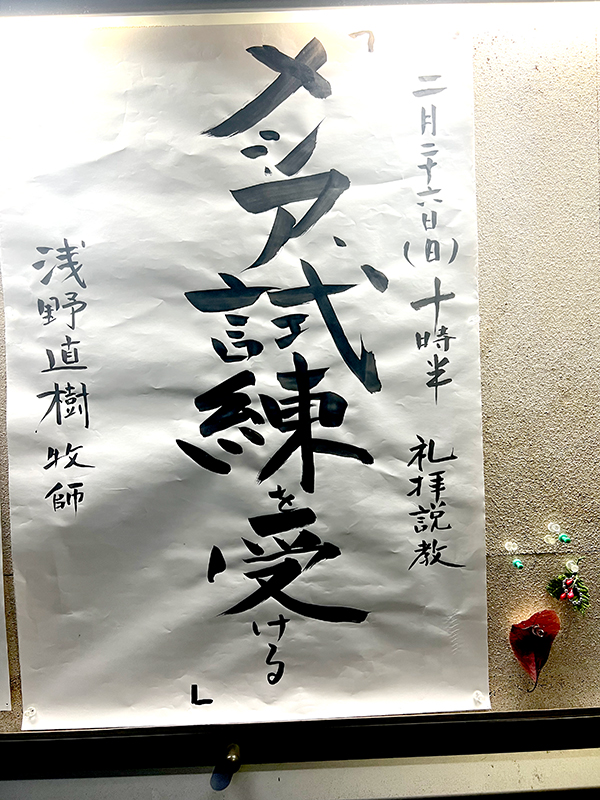 二月二十六日(日)十時半 礼拝説教
「メシア、試練を受ける」
浅野直樹牧師